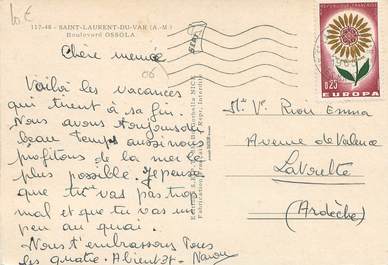 10€
117-46 - SAINT-LAURENT-DU-VAR (A.-M.)
Boulevard OSSOLA
Chère mémée
06
Voilà les vacances
qui tirent à sa fin.
Nous avons toujours
beau temps aussi nous
profitons de la mer le
plus possible. Je pense
que tu vas pas trop
mal et que tu vas un
peu au quai.
Nous t'embrassons tous
les quatre. A bientôt -
RÉPUBLIQUE FRANÇAISE
0,25
EUROPA
Me Ve Rioù Emma
Avenue de Valence
La Voulte
(Ardèche)